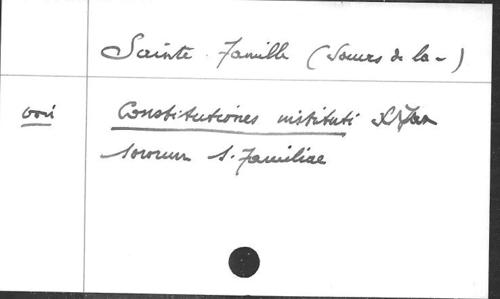 Sainte Famille (Sœurs de la -)
voir Constitutiones instituti
sororum S. Familiae